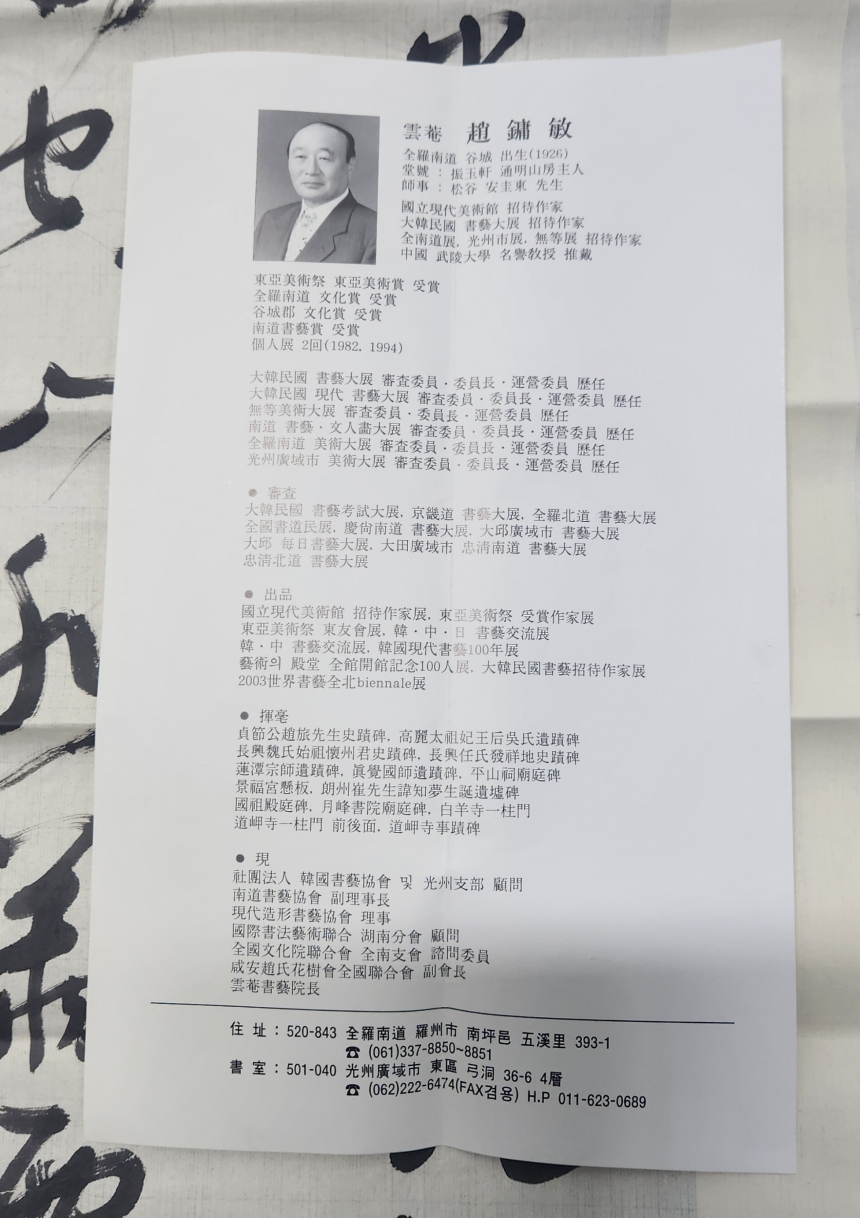 雲菴 趙鏞敏
全羅南道 谷城 出生(1926)
堂號 : 振玉軒 通明山房主人
師事 : 松谷 安圭東 先生
國立現代美術館 招待作家
大韓民國 書藝大展 招待作家
全南道展, 光州市展, 無等展 招待作家
中國 武陵大學 名譽敎授 推戴
東亞美術祭 東亞美術賞 受賞
全羅南道 文化賞 受賞
谷城郡 文化賞 受賞
南道書藝賞 受賞
個人展 2回(1982, 1994)
大韓民國 書藝大展 審査委員·委員長·運營委員 歷任
大韓民國 現代 書藝大展 審査委員·委員長·運營委員 歷任
無等美術大展 審査委員·委員長·運營委員 歷任
南道 書藝·文人畵大展 審査委員·委員長·運營委員 歷任
全羅南道 美術大展 審査委員·委員長·運營委員 歷任
光州廣域市 美術大展 審査委員·委員長·運營委員 歷任
● 審査
大韓民國 書藝考試大展, 京畿道 書藝大展, 全羅北道 書藝大展
全國書道民展, 慶尙南道 書藝大展, 大邱廣域市 書藝大展
大邱 每日書藝大展, 大田廣域市 忠淸南道 書藝大展
忠淸北道 書藝大展
● 出品
國立現代美術館 招待作家展, 東亞美術祭 受賞作家展
東亞美術祭 東友會展, 韓·中·日 書藝交流展
韓·中 書藝交流展, 韓國現代書藝100年展
藝術의 殿堂 全館開館記念100人展, 大韓民國書藝招待作家展
2003世界書藝全北biennale展
● 揮毫
貞節公趙旅先生史蹟碑, 高麗太祖妃王后吳氏遺蹟碑
長興魏氏始祖懷州君史蹟碑, 長興任氏發祥地史蹟碑
蓮潭宗師遺蹟碑, 眞覺國師遺蹟碑, 平山祠廟庭碑
景福宮懸板, 朗州崔先生諱知夢生誕遺墟碑
國祖殿庭碑, 月峰書院廟庭碑, 白羊寺一柱門
道岬寺一柱門 前後面, 道岬寺事蹟碑
● 現
社團法人 韓國書藝協會 및 光州支部 顧問
南道書藝協會 副理事長
現代造形書藝協會 理事
國際書法藝術聯合 湖南分會 顧問
全國文化院聯合會 全南支會 諮問委員
咸安趙氏花樹會全國聯合會 副會長
雲菴書藝院長
住 址 : 520-843 全羅南道 羅州市 南坪邑 五溪里 393-1
☎ (061)337-8850~8851
書 室 : 501-040 光州廣域市 東區 弓洞 36-6 4層
☎ (062)222-6474(FAX겸용) H.P 011-623-0689